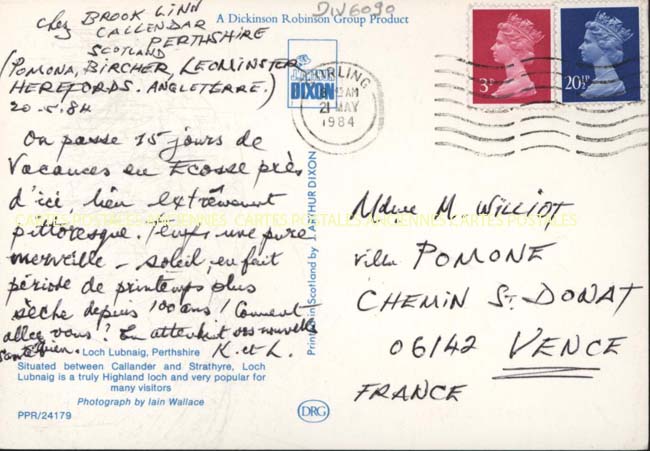 A Dickinson Robinson Group Product
DW6090
chez BROOK LINN
CALLENDAR
PERTHSHIRE
SCOTLAND
(POMONA, BIRCHER, LEOMINSTER
HEREFORDS. ANGLETERRE.)
20.5.84
On passe 15 jours de
Vacances en Ecosse près
d'ici, lieu extrêmement
pittoresque Temps, une pure
merveille – soleil, en fait
période de printemps plus
sèche depuis 100 ans! Comment
allez vous? En attendant vos nouvelles
K. et L.
Loch Lubnaig, Perthshire
Situated between Callander and Strathyre, Loch
Lubnaig is a truly Highland loch and very popular for
many visitors
Photograph by Iain Wallace
PPR/24179
J. ARTHUR
DIXON
STIRLING
AM
21 MAY
1984
3P
20½P
Printed in Scotland by J. ARTHUR DIXON
DRG
Mdme M. WILLIOT
villa POMONE
CHEMIN St. DONAT
06142 VENCE
FRANCE
CARTES POSTALES ANCIENNES CARTES POSTALES ANCIENNES CARTES POSTALES